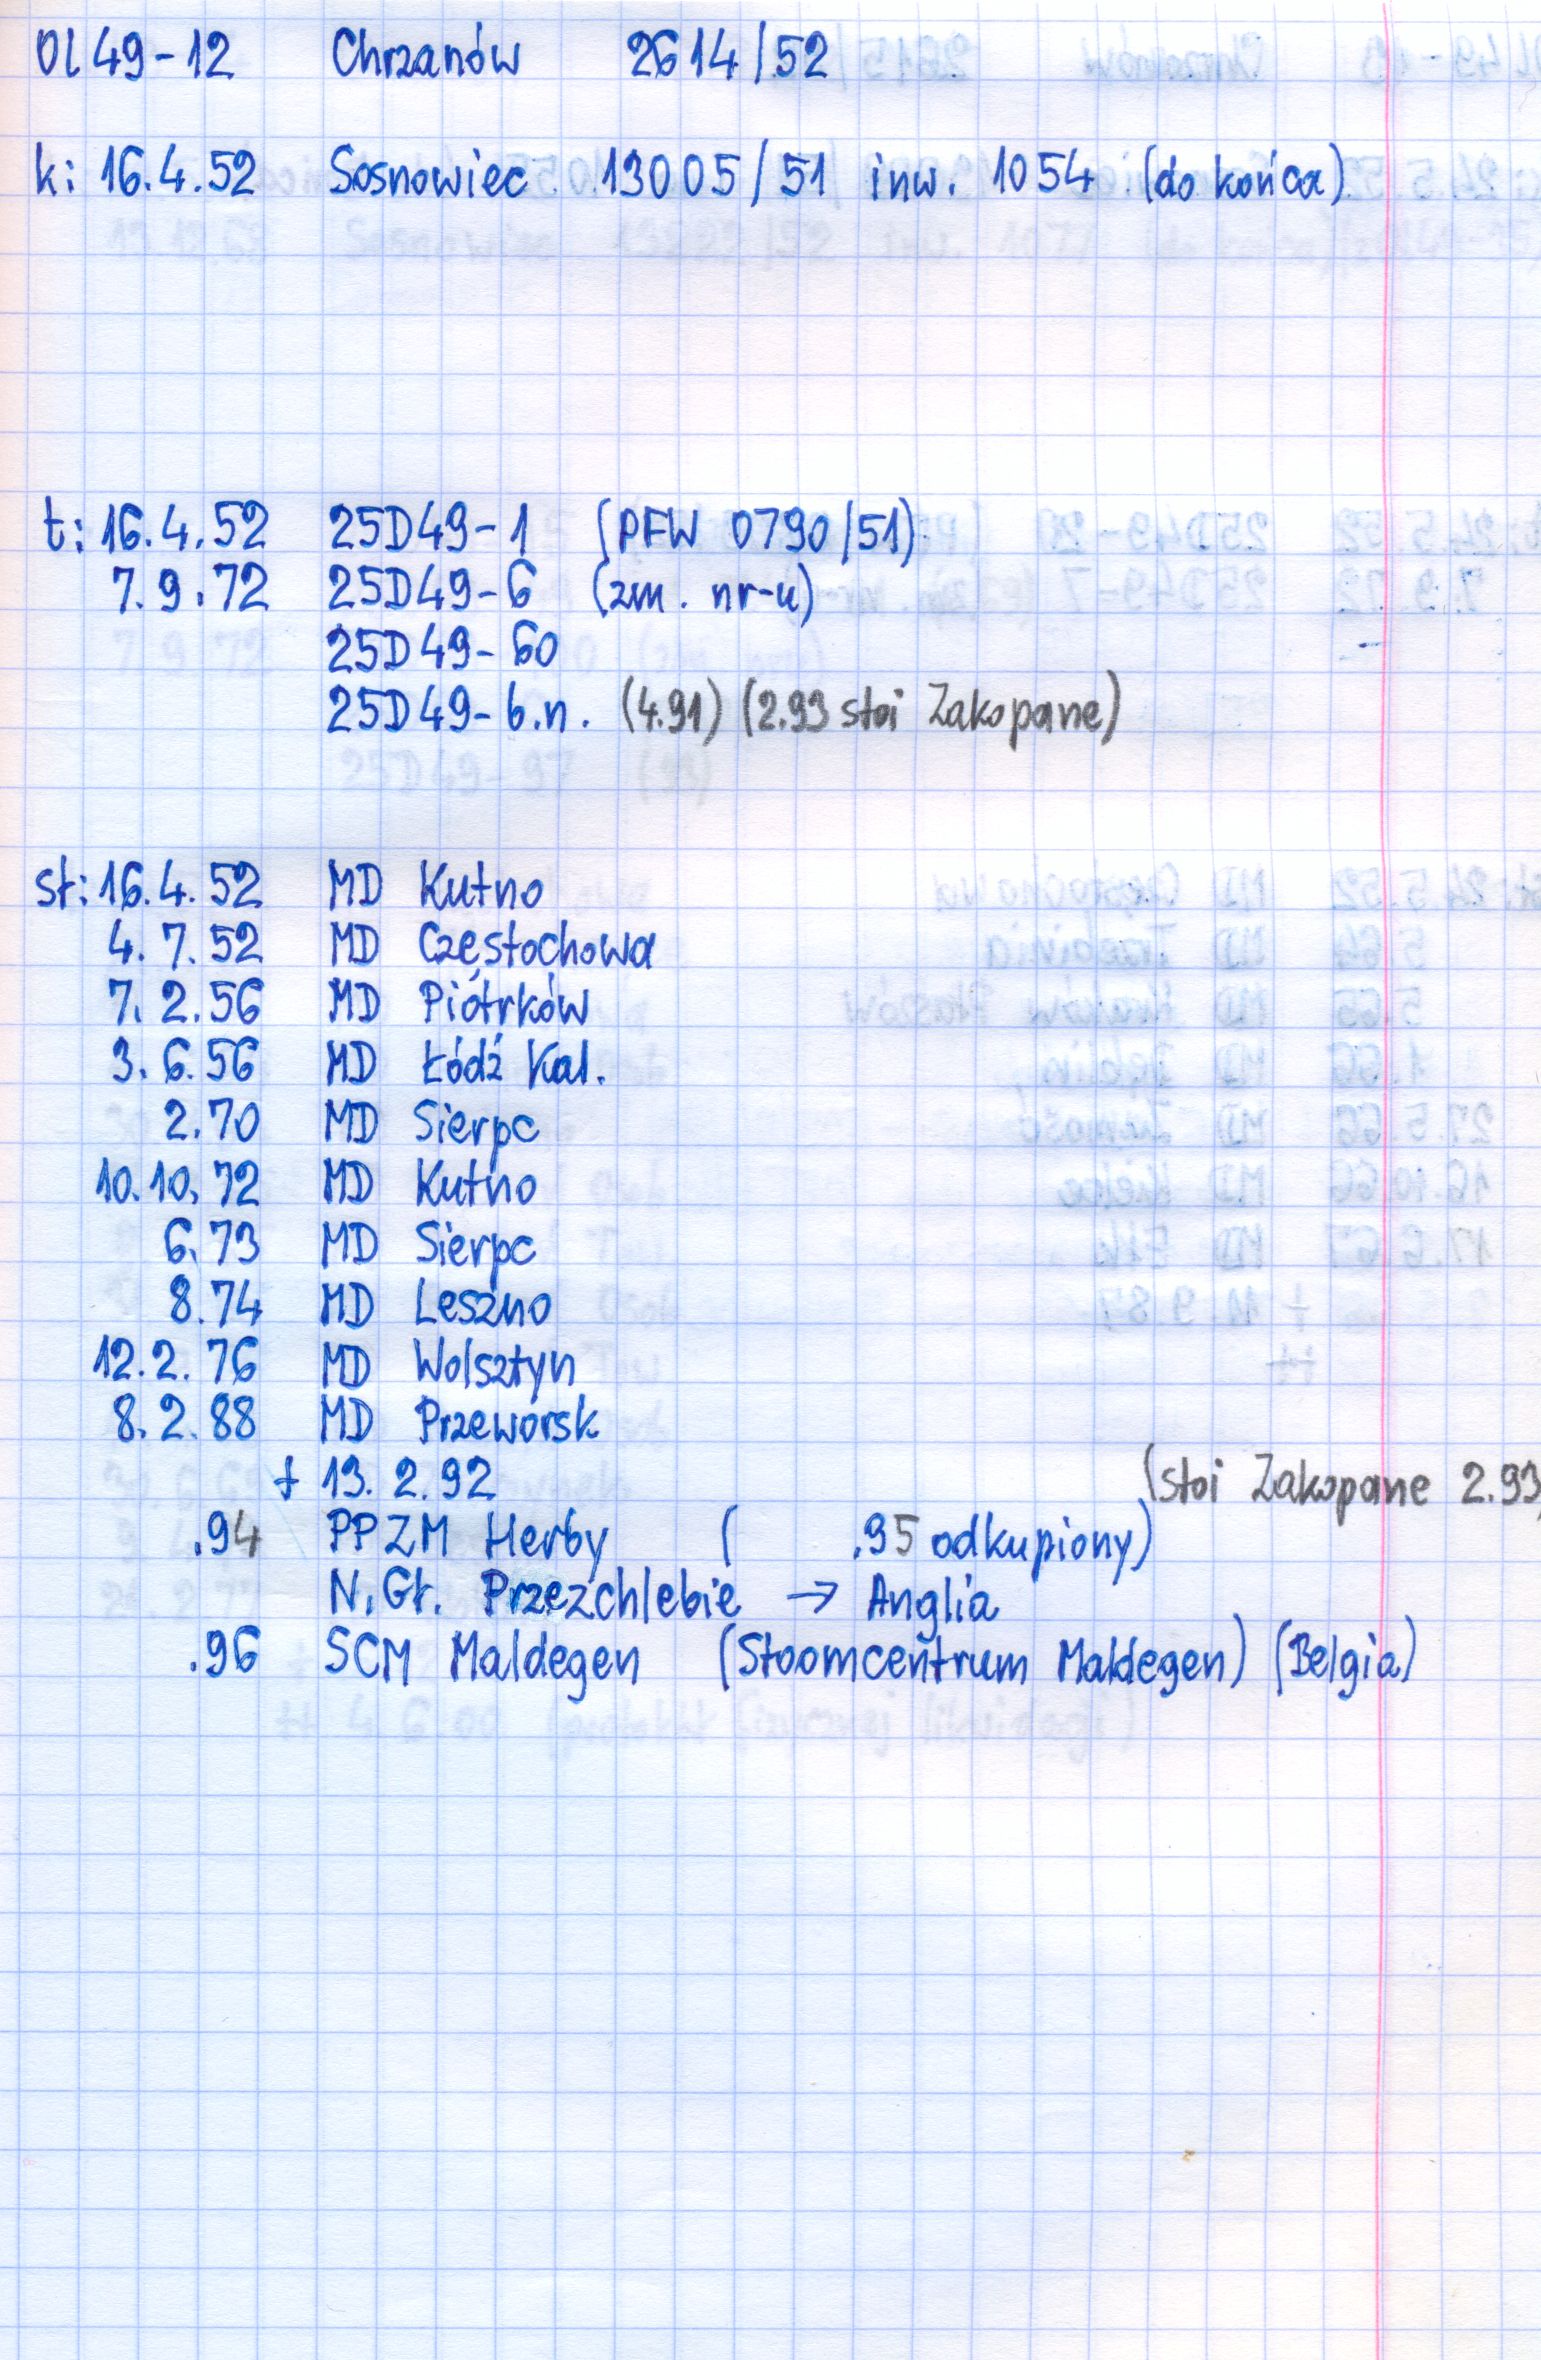 Ol 49-12 Chrzanów 2614/52
k: 16.4.52 Sosnowiec 13005/51 inw. 1054 (do końca)
t: 16.4.52 25D49-1 (PFW 0790/51)
7.9.72 25D49-6 (zm. nr-u)
25D49-60
25D49-b.n. (4.91) (2.93 stoi Zakopane)
st: 16.4.52 MD Kutno
4.7.52 MD Częstochowa
7.2.56 MD Piotrków
3.6.56 MD Łódź Kal.
2.70 MD Sierpc
10.10.72 MD Kutno
6.73 MD Sierpc
8.74 MD Leszno
12.2.76 MD Wolsztyn
8.2.88 MD Przeworsk
+ 13.2.92 (stoi Zakopane 2.93)
.94 PPZM Herby ( .95 odkupiony)
N.Gł. Przezchlebie → Anglia
.96 SCM Maldegen (Stoomcentrum Maldegen) (Belgia)